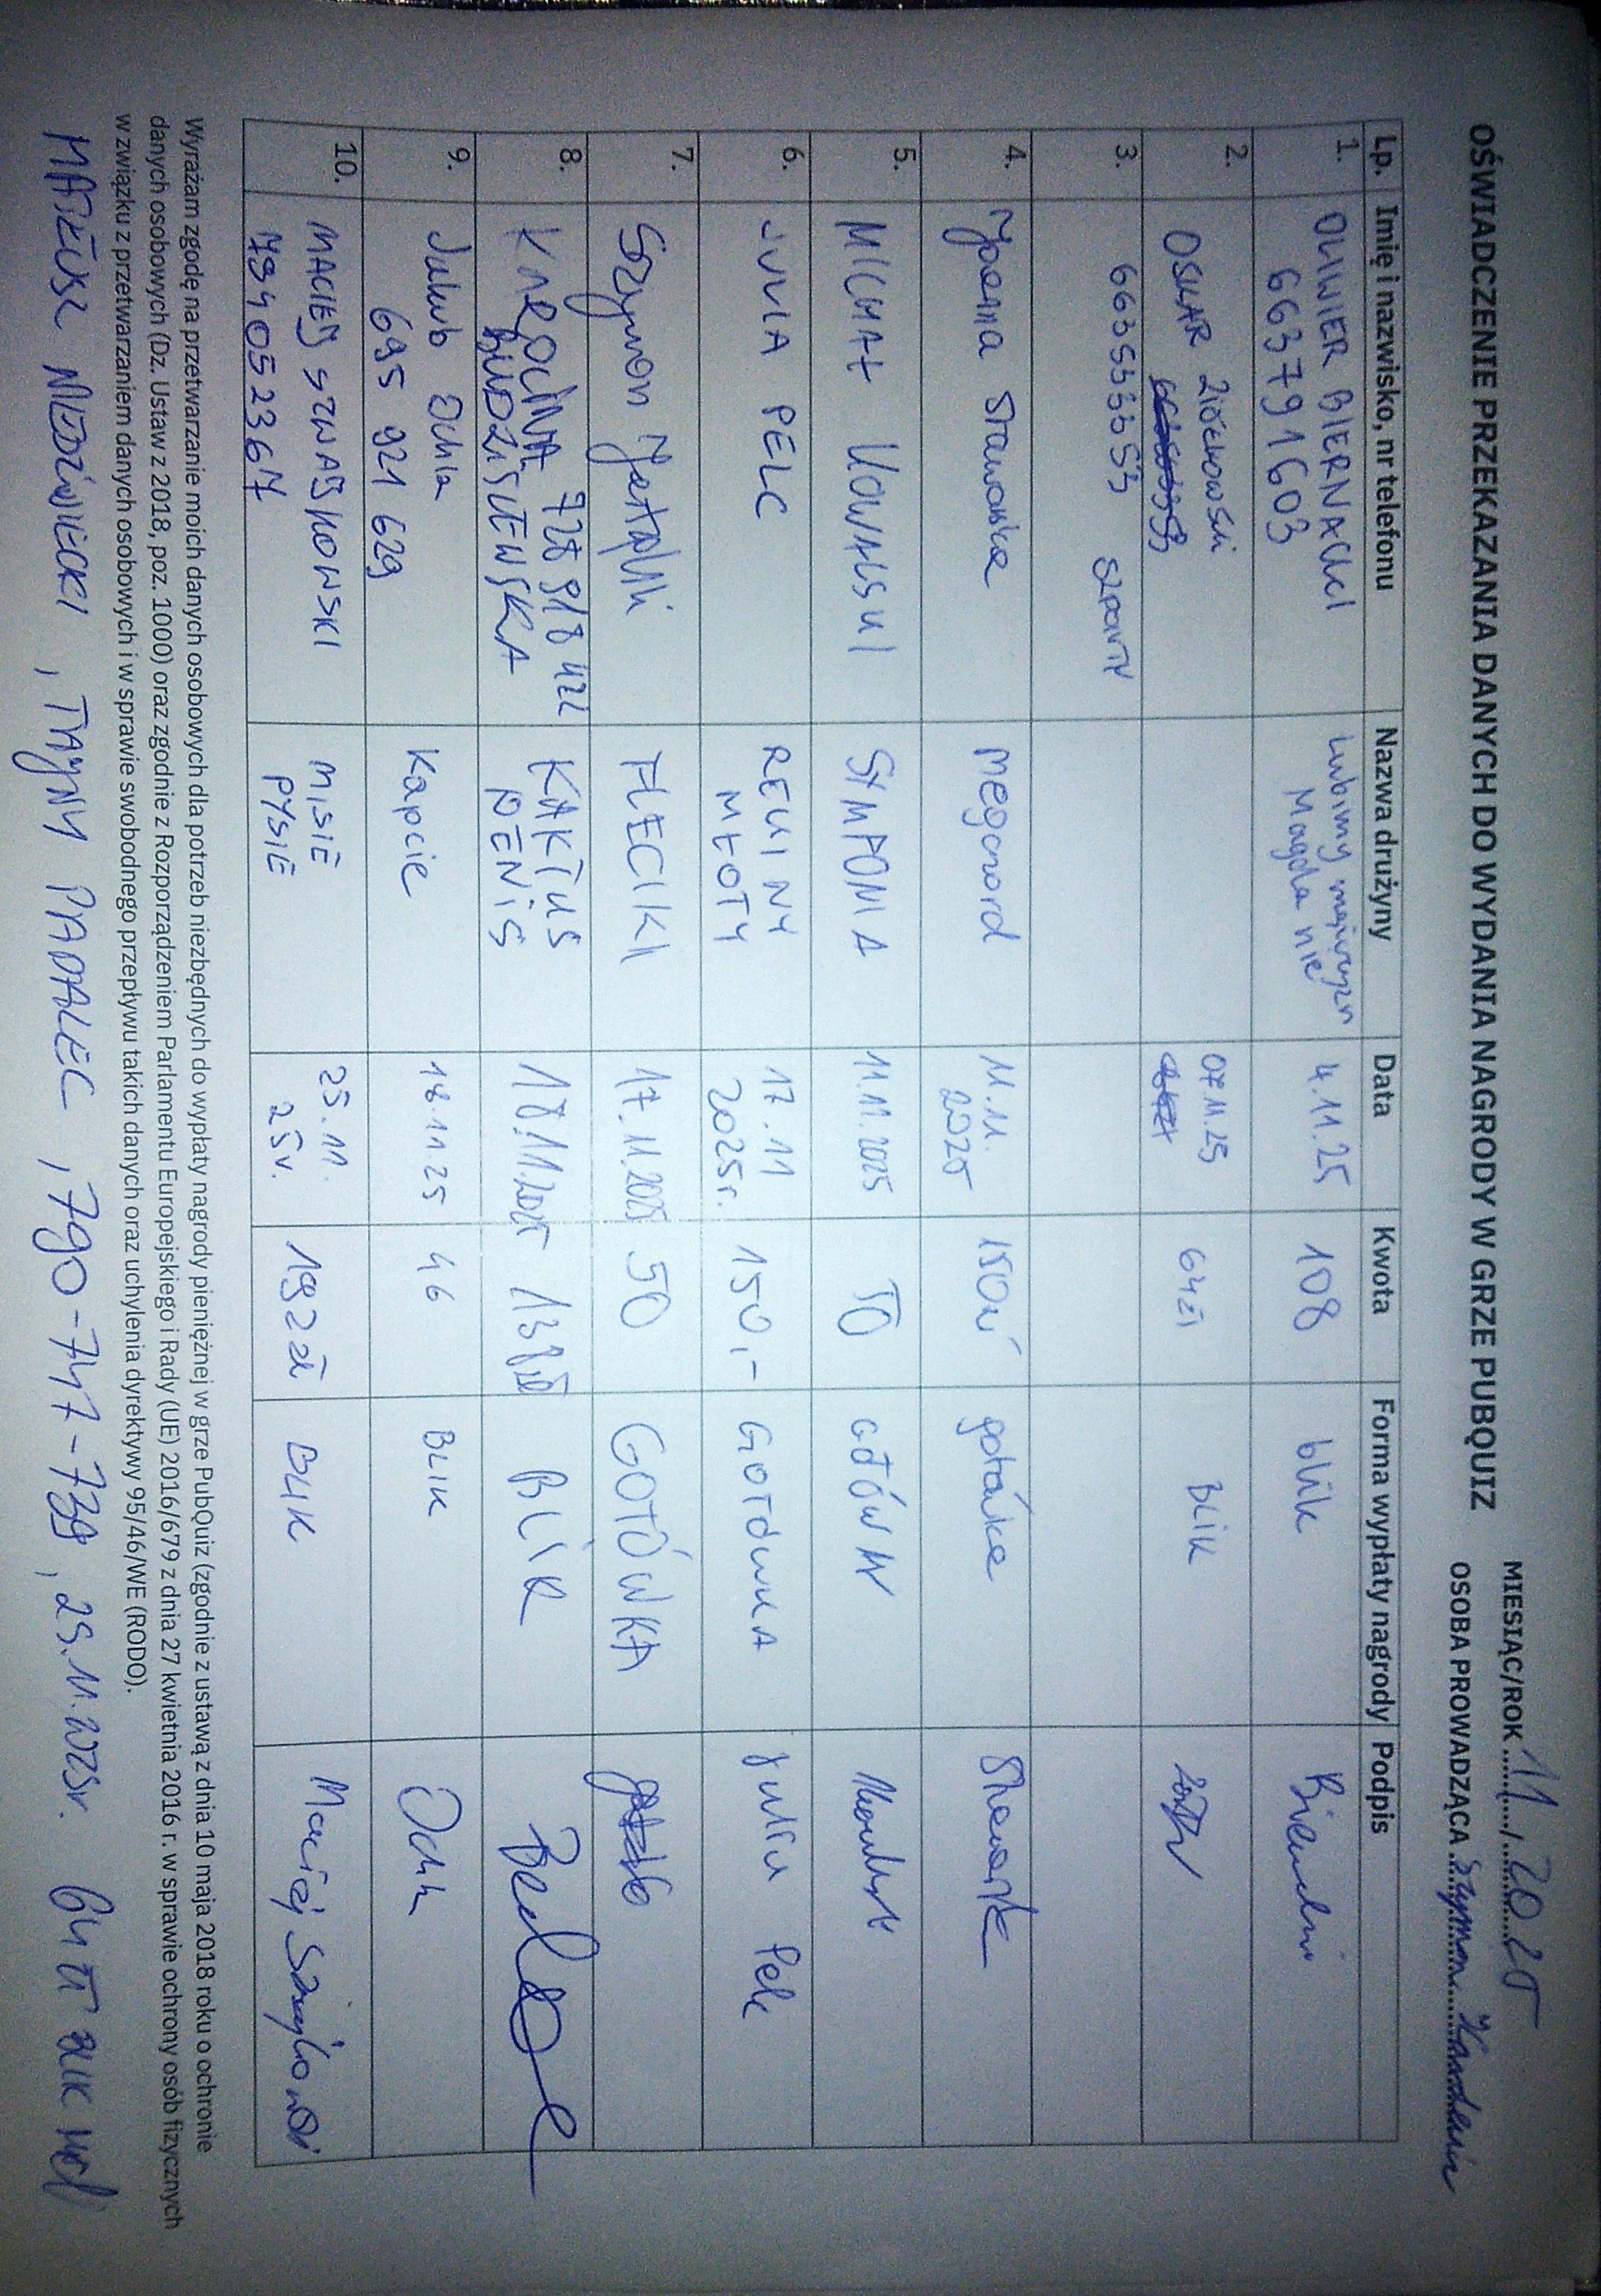 MIESIĄC/ROK 11 / 2025
OŚWIADCZENIE PRZEKAZANIA DANYCH DO WYDANIA NAGRODY W GRZE PUBQUIZ
OSOBA PROWADZĄCA Szymon
Lp. Imię i nazwisko, nr telefonu Nazwa drużyny Data Kwota Forma wypłaty nagrody Podpis
1. OLIWIER BIERNACKI Lubimy mężczyzn 4.11.25 108 blik
663791603 Magda nie
2. OSKAR ZIÓŁKOWSKI 07.11.25 64zł BLIK
3. 663535353 SZPARTY
4. Joanna Sławońska Meganord 11.11. 150zł gotówka
2025
5. MICHAŁ KOWALSKI SYMFONIA 11.11.2025 50 GOTÓW
6. JULIA PELC REKINY 17.11 150,- GOTÓWKA Julia Pelc
MŁOTY 2025r.
7. Szymon FLECIKI 17.11.2025 50 GOTÓWKA
8. KAROLINA 728 918 422 KAKTUS 18.11.2025 138zł BLIK
BUDZISZEWSKA PENIS
9. Jakub Ochla Kapcie 18.11.25 46 BLIK
695 921 629
10. MACIEJ SZWAJKOWSKI MISIE 25.11. 192zł BLIK Maciej
794052367 PYSIE 25r.
Wyrażam zgodę na przetwarzanie moich danych osobowych dla potrzeb niezbędnych do wypłaty nagrody pieniężnej w grze PubQuiz (zgodnie z ustawą z dnia 10 maja 2018 roku o ochronie
danych osobowych (Dz. Ustaw z 2018, poz. 1000) oraz zgodnie z Rozporządzeniem Parlamentu Europejskiego i Rady (UE) 2016/679 z dnia 27 kwietnia 2016 r. w sprawie ochrony osób fizycznych
w związku z przetwarzaniem danych osobowych i w sprawie swobodnego przepływu takich danych oraz uchylenia dyrektywy 95/46/WE (RODO).
MATEUSZ NIEDŹWIECKI, TAJNY PADALEC, 790-747-739, 25.11.2025r. 64 zł BLIK